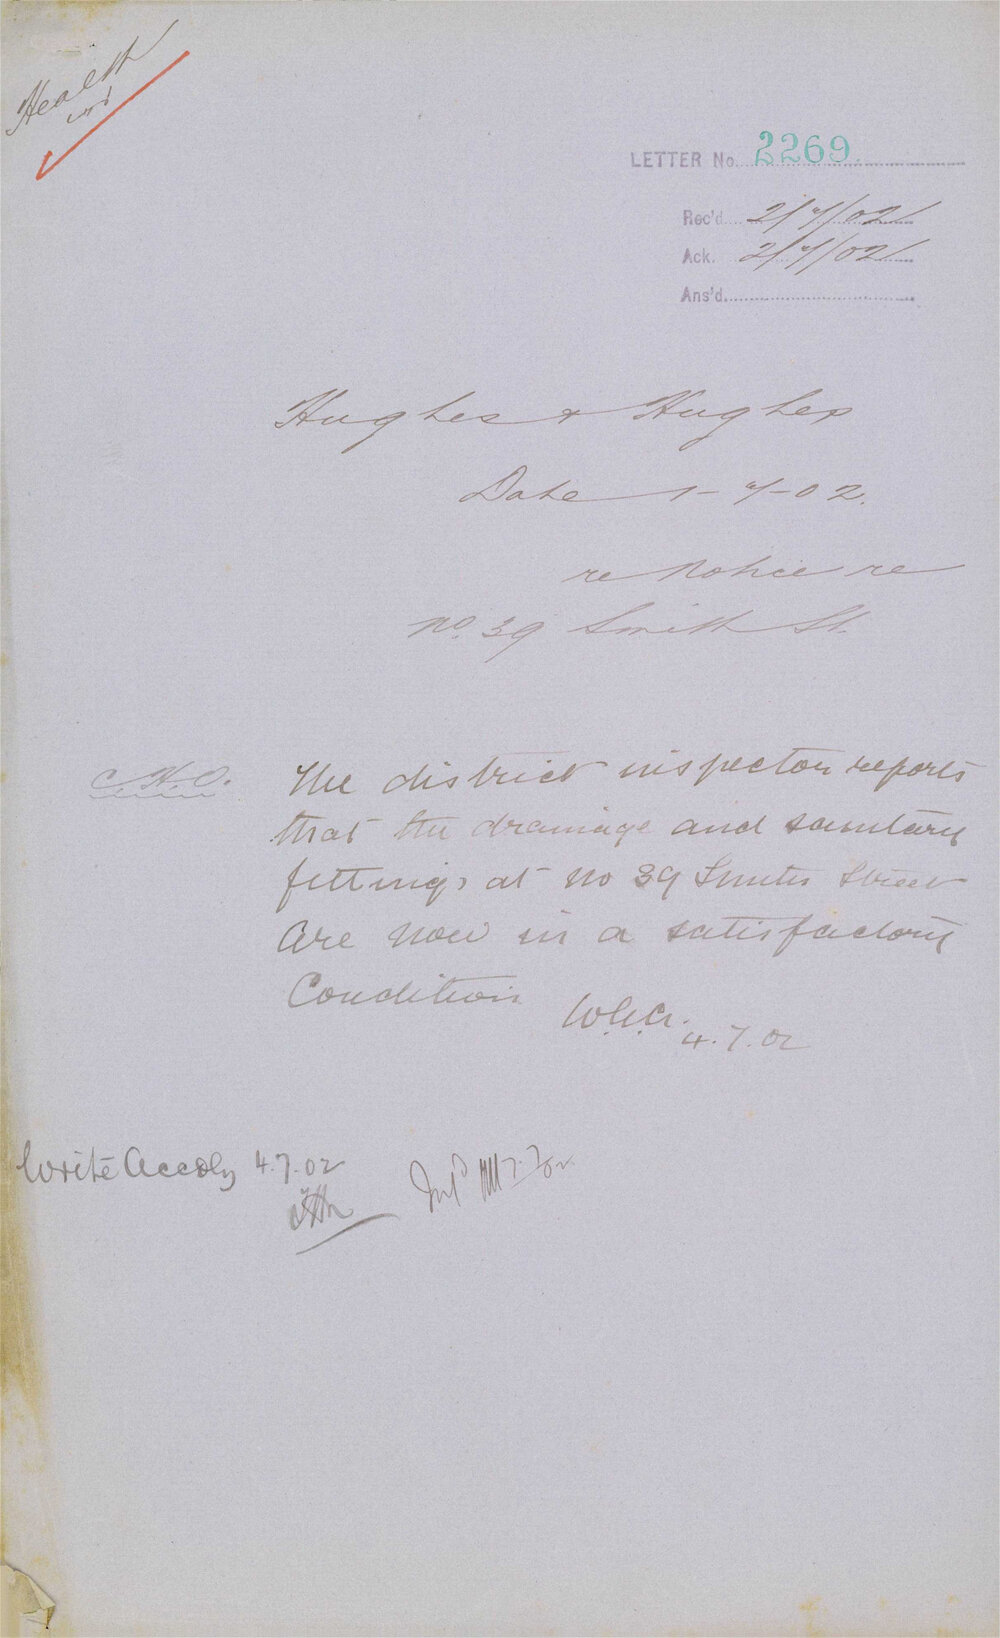 Health
LETTER No. 2269
Rec'd 2/7/02
Ack. 2/7/02
Ans'd.
Hughes & Hughes
Date 1-7-02.
re Notice re
No. 39 Smith St.
C.H.O. The district inspector reports
that the drainage and sanitary
fittings at No 39 Smith Street
are now in a satisfactory
Condition
4.7.02
Write Accdly 4.7.02